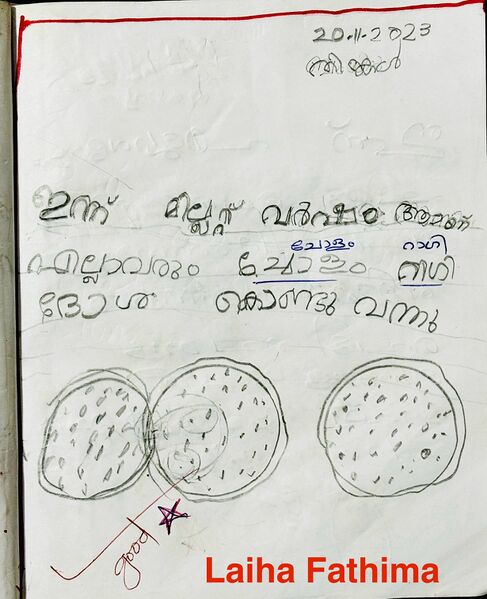 20-11-2023
തിങ്കൾ
ഇന്ന് മില്ലറ്റ് വർഷം ആണ്
ചോളം റാഗി
എല്ലാവരും ചോളം റാഗി
ദോശ കൊണ്ടു വന്നു
good
Laiha Fathima